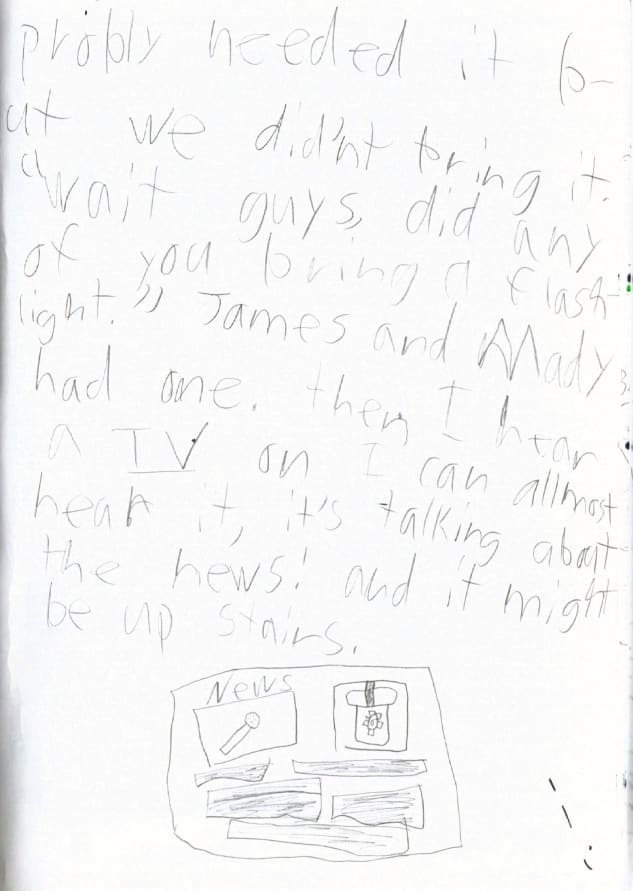 probly needed it b-
ut we did'nt bring it.
"wait guys, did any
of you bring a flash-
light." James and Mady
had one. then I hear
a TV on I can allmost
hear it, it's talking about
the news! and it might
be up stairs.
News